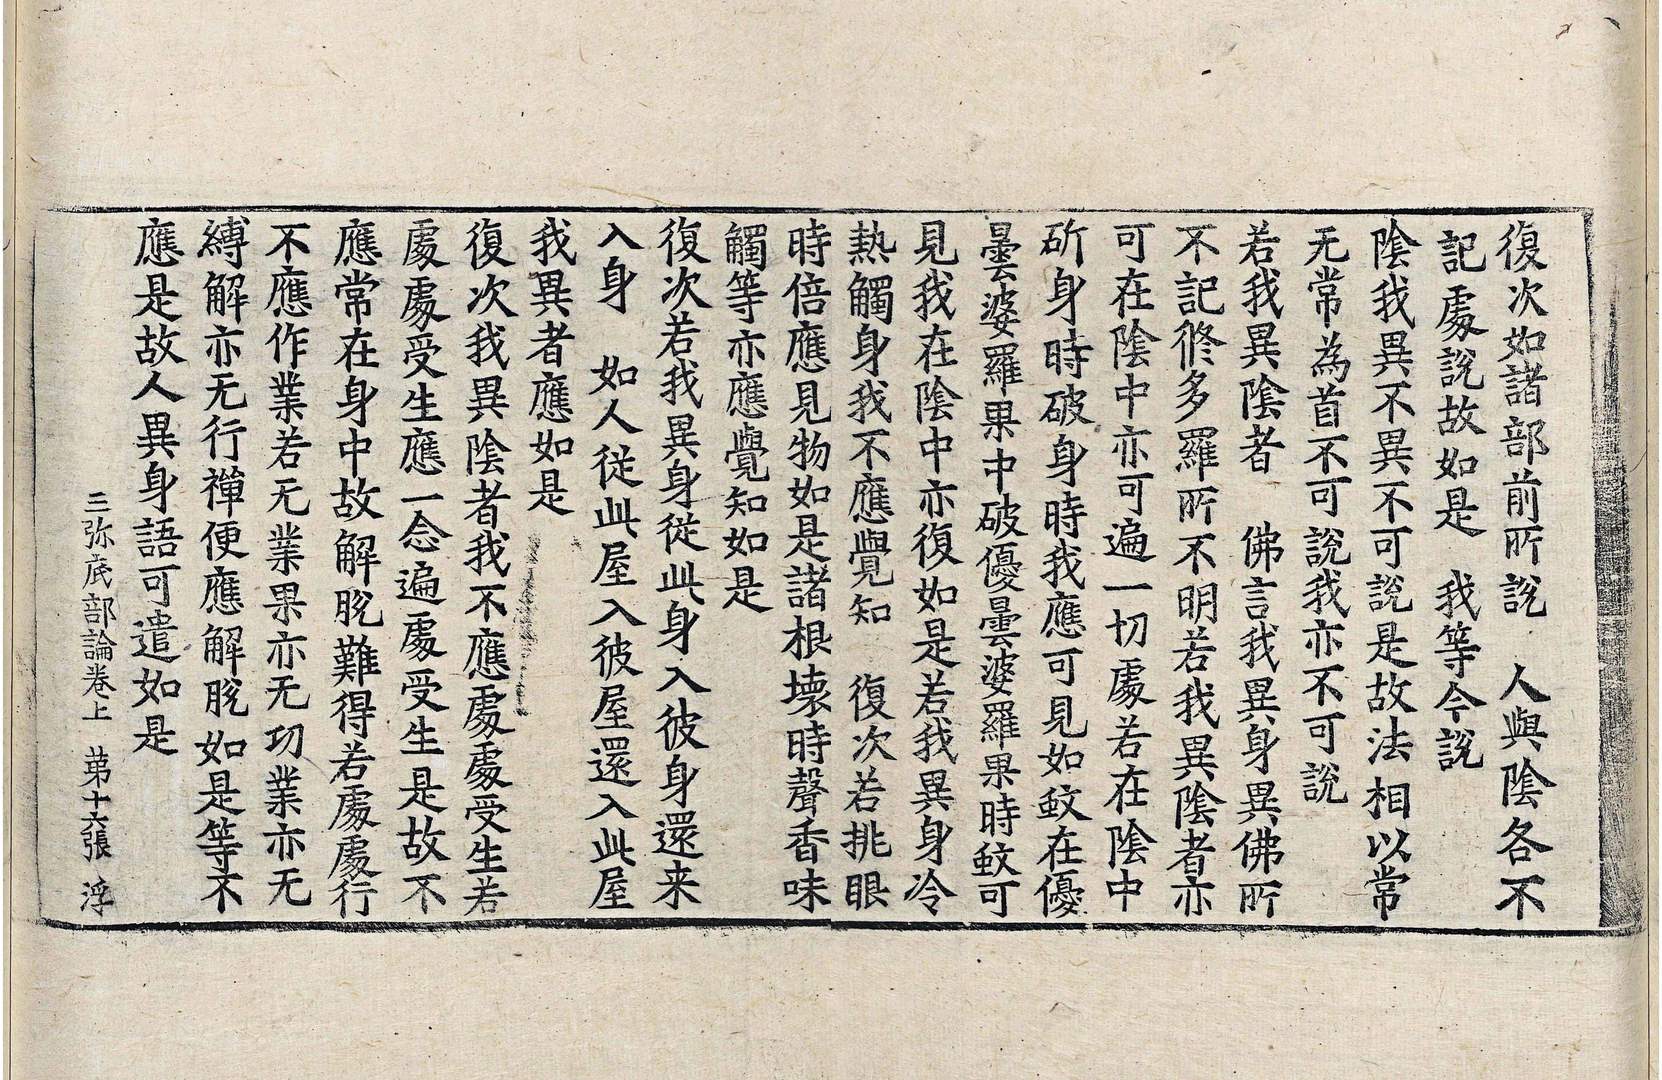 復次如諸部前所說 人與陰各不
記處說故如是 我等今說
陰我異不異不可說是故法相以常
无常為首不可說我亦不可說
若我異陰者 佛言我異身異佛所
不記修多羅所不明若我異陰者亦
可在陰中亦可遍一切處若在陰中
斫身時破身時我應可見如蚊在優
曇婆羅果中破優曇婆羅果時蚊可
見我在陰中亦復如是若我異身冷
熱觸身我不應覺知 復次若挑眼
時倍應見物如是諸根壞時聲香味
觸等亦應覺知如是
復次若我異身從此身入彼身還来
入身 如人從此屋入彼屋還入此屋
我異者應如是
復次我異陰者我不應處處受生若
處處受生應一念遍處受生是故不
應常在身中故解脫難得若處處行
不應作業若无業果亦无功業亦无
縛解亦无行禪便應解脫如是等不
應是故人異身語可遣如是
三弥底部論卷上 第十六張 浮